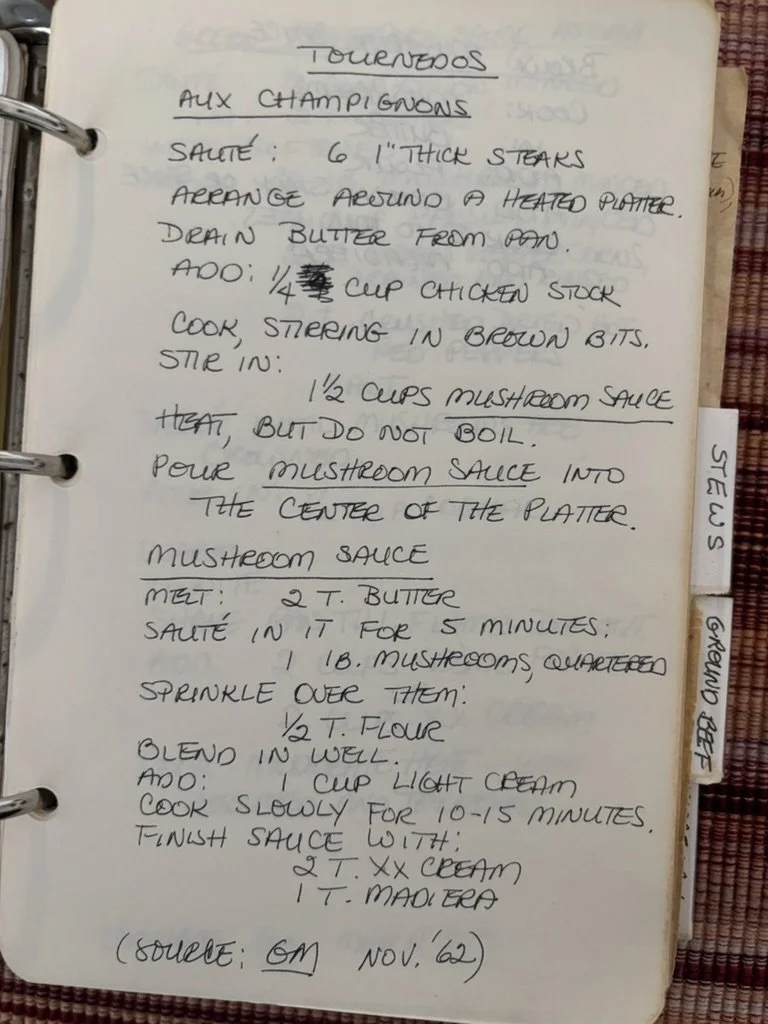 TOURNEDOS
AUX CHAMPIGNONS
SAUTÉ: 6 1" THICK STEAKS
ARRANGE AROUND A HEATED PLATTER.
DRAIN BUTTER FROM PAN.
ADD: 1/4 CUP CHICKEN STOCK
COOK, STIRRING IN BROWN BITS.
STIR IN:
1 1/2 CUPS MUSHROOM SAUCE
HEAT, BUT DO NOT BOIL.
POUR MUSHROOM SAUCE INTO
THE CENTER OF THE PLATTER.
MUSHROOM SAUCE
MELT: 2 T. BUTTER
SAUTÉ IN IT FOR 5 MINUTES:
1 lB. MUSHROOMS, QUARTERED
SPRINKLE OVER THEM:
1/2 T. FLOUR
BLEND IN WELL.
ADD: 1 CUP LIGHT CREAM
COOK SLOWLY FOR 10-15 MINUTES.
FINISH SAUCE WITH:
2 T. XX CREAM
1 T. MADIERA
(SOURCE: GM NOV. '62)
STEWS
GROUND BEEF